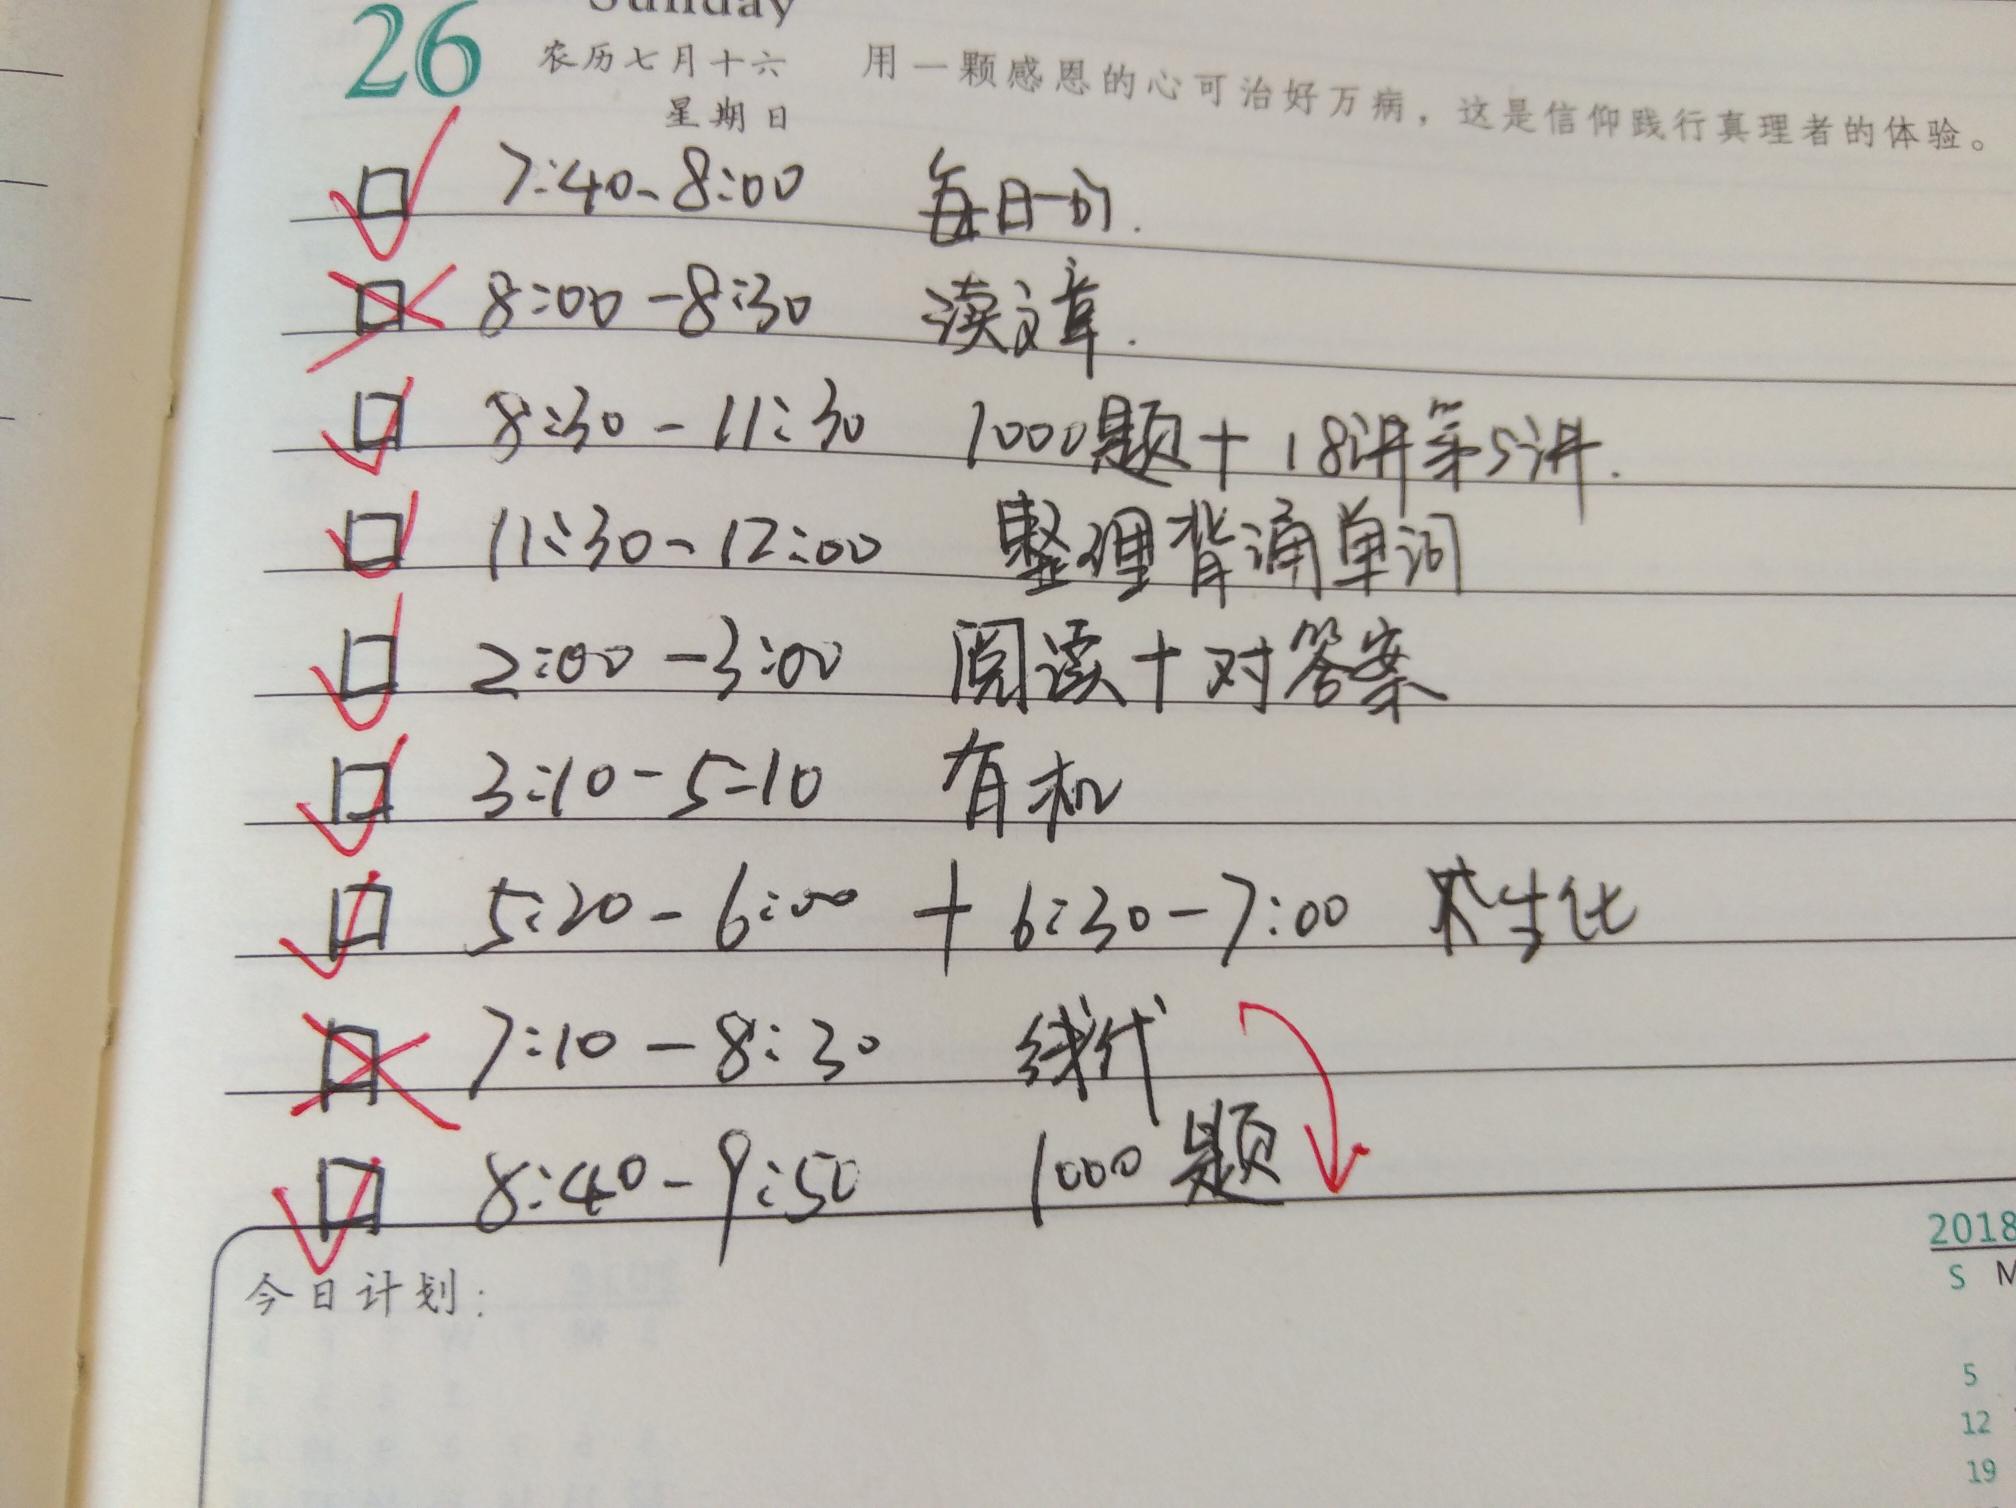 Sunday
26 农历七月十六 用一颗感恩的心可治好万病，这是信仰践行真理者的体验。
星期日
7:40-8:00 每日一句.
8:00-8:30 读文章.
8:30-11:30 1000题+18讲第5讲.
11:30-12:00 整理背诵单词
2:00-3:00 阅读+对答案
3:10-5:10 有机
5:20-6:00 + 6:30-7:00 生化
7:10-8:30 线代
8:40-9:50 1000题
今日计划:
2018
S M
5
12
19